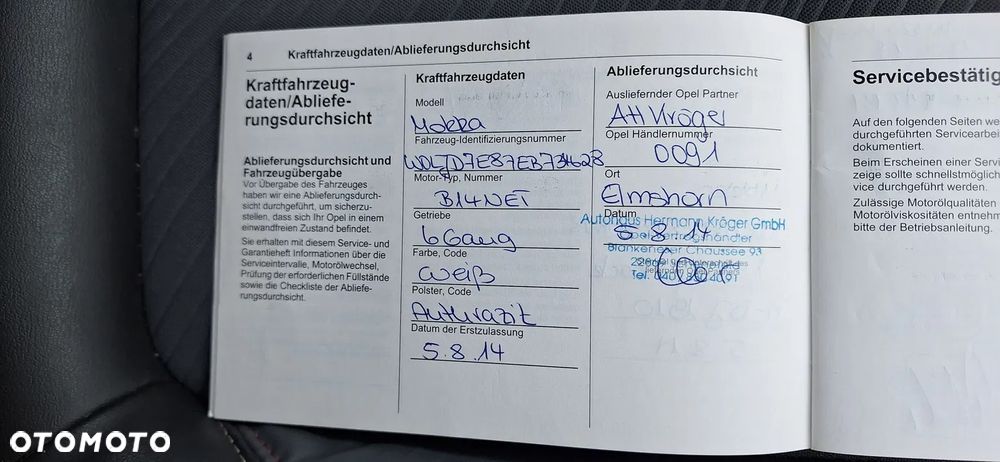 4 Kraftfahrzeugdaten/Ablieferungsdurchsicht
Kraftfahrzeug-
daten/Abliefe-
rungsdurchsicht
Ablieferungsdurchsicht und
Fahrzeugübergabe
Vor Übergabe des Fahrzeuges
haben wir eine Ablieferungsdurch-
sicht durchgeführt, um sicherzu-
stellen, dass sich Ihr Opel in einem
einwandfreien Zustand befindet.
Sie erhalten mit diesem Service- und
Garantieheft Informationen über die
Serviceintervalle, Motorölwechsel,
Prüfung der erforderlichen Füllstände
sowie die Checkliste der Abliefe-
rungsdurchsicht.
Kraftfahrzeugdaten
Modell
Mokka
Fahrzeug-Identifizierungsnummer
W0LJD7E87EB734628
Motor-Typ, Nummer
B14NET
Getriebe
6Gang
Farbe, Code
weiß
Polster, Code
Anthrazit
Datum der Erstzulassung
5.8.14
Ablieferungsdurchsicht
Ausliefernder Opel Partner
AH Kröger
Opel Händlernummer
0091
Ort
Elmshorn
Datum
5.8.14
Autohaus Hermann Kröger GmbH
Opel Vertragshändler
Blankeneser Chaussee 93
Servicebestätig
Auf den folgenden Seiten we
durchgeführten Servicearbei
dokumentiert.
Beim Erscheinen einer Servi
zeige sollte schnellstmöglich
vice durchgeführt werden.
Zulässige Motorölqualitäten
Motorölviskositäten entnehm
bitte der Betriebsanleitung.
OTOMOTO